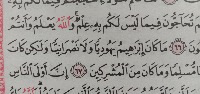 تُحَاجُّونَ فِيمَا لَيْسَ لَكُم بِهِ عِلْمٌ وَاللَّهُ يَعْلَمُ وَأَنتُمْ
٦٦ مَا كَانَ إِبْرَاهِيمُ يَهُودِيًّا وَلَا نَصْرَانِيًّا وَلَكِن كَانَ
مُّسْلِمًا وَمَا كَانَ مِنَ الْمُشْرِكِينَ ٦٧ إِنَّ أَوْلَى النَّاسِ